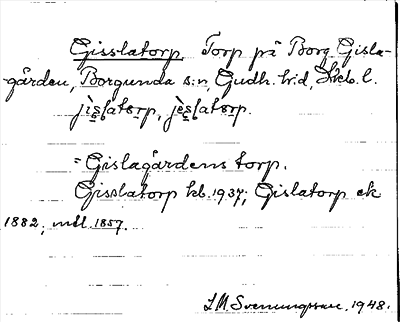 Gisslatorp Torp på Borg Gisla-
-gården, Borgunda s:n, Gudh. h:d, Skab. l.
= Gislagårdens torp.
Gisslatorp kb. 1937; Gislatorp ek
1882; mtl. 1857.
J M Svenungsson. 1948.